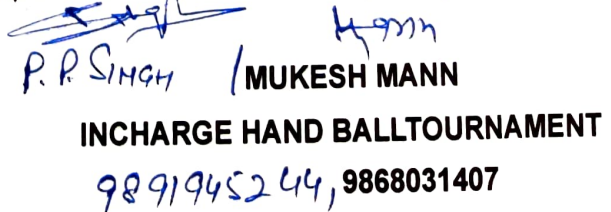 P. P. SINGH / MUKESH MANN
INCHARGE HAND BALLTOURNAMENT
9891945244, 9868031407